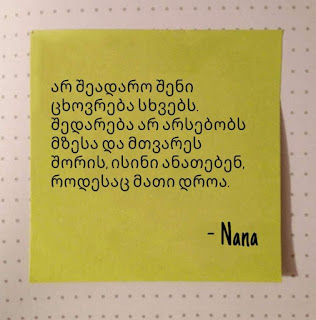 არ შეადარო შენი
ცხოვრება სხვებს.
შედარება არ არსებობს
მზესა და მთვარეს
შორის, ისინი ანათებენ,
როდესაც მათი დროა.
- Nana